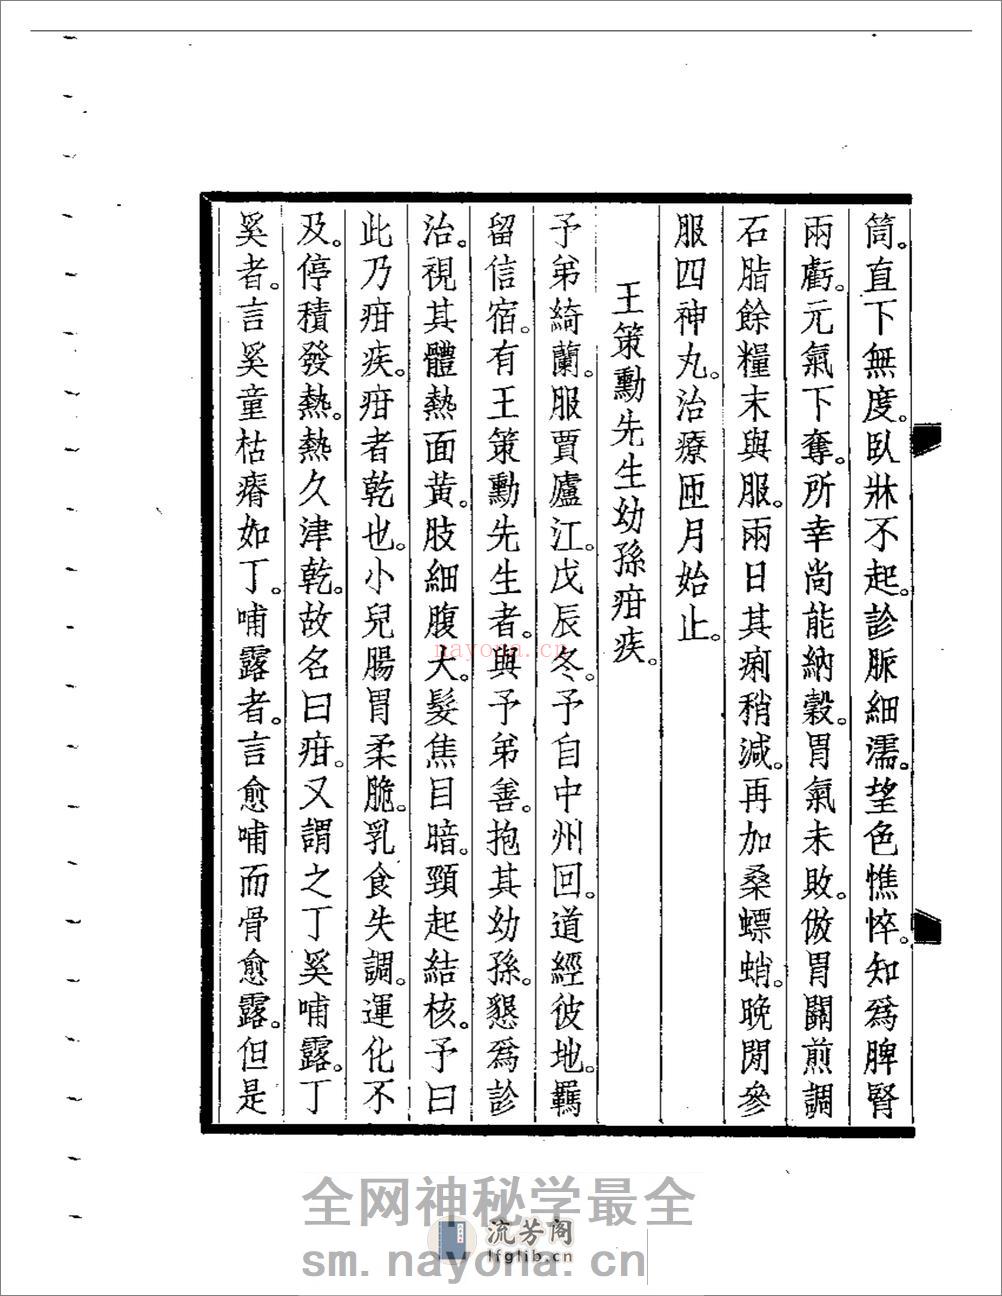 筒。直下無度。臥牀不起。診脈細濡。望色憔悴。知爲脾腎
兩虧。元氣下奪。所幸尚能納穀。胃氣未敗。倣胃關煎調
石脂餘糧末與服。兩日其痢稍減。再加桑螵蛸。晚閒參
服四神丸。治療匝月始止。
王策勳先生幼孫疳疾。
予弟綺蘭。服賈廬江。戊辰冬。予自中州回。道經彼地。羈
留信宿。有王策勳先生者。與予弟善。抱其幼孫。懇爲診
治。視其體熱面黃。肢細腹大。髮焦目暗。頸起結核。予曰
此乃疳疾。疳者乾也。小兒腸胃柔脆。乳食失調。運化不
及。停積發熱。熱久津乾。故名曰疳。又謂之丁奚哺露。丁
奚者。言奚童枯瘠如丁。哺露者。言愈哺而骨愈露。但是
nayona.cn
全网神秘学最全
流芳阁
lfglib.cn
sm.nayona.cn